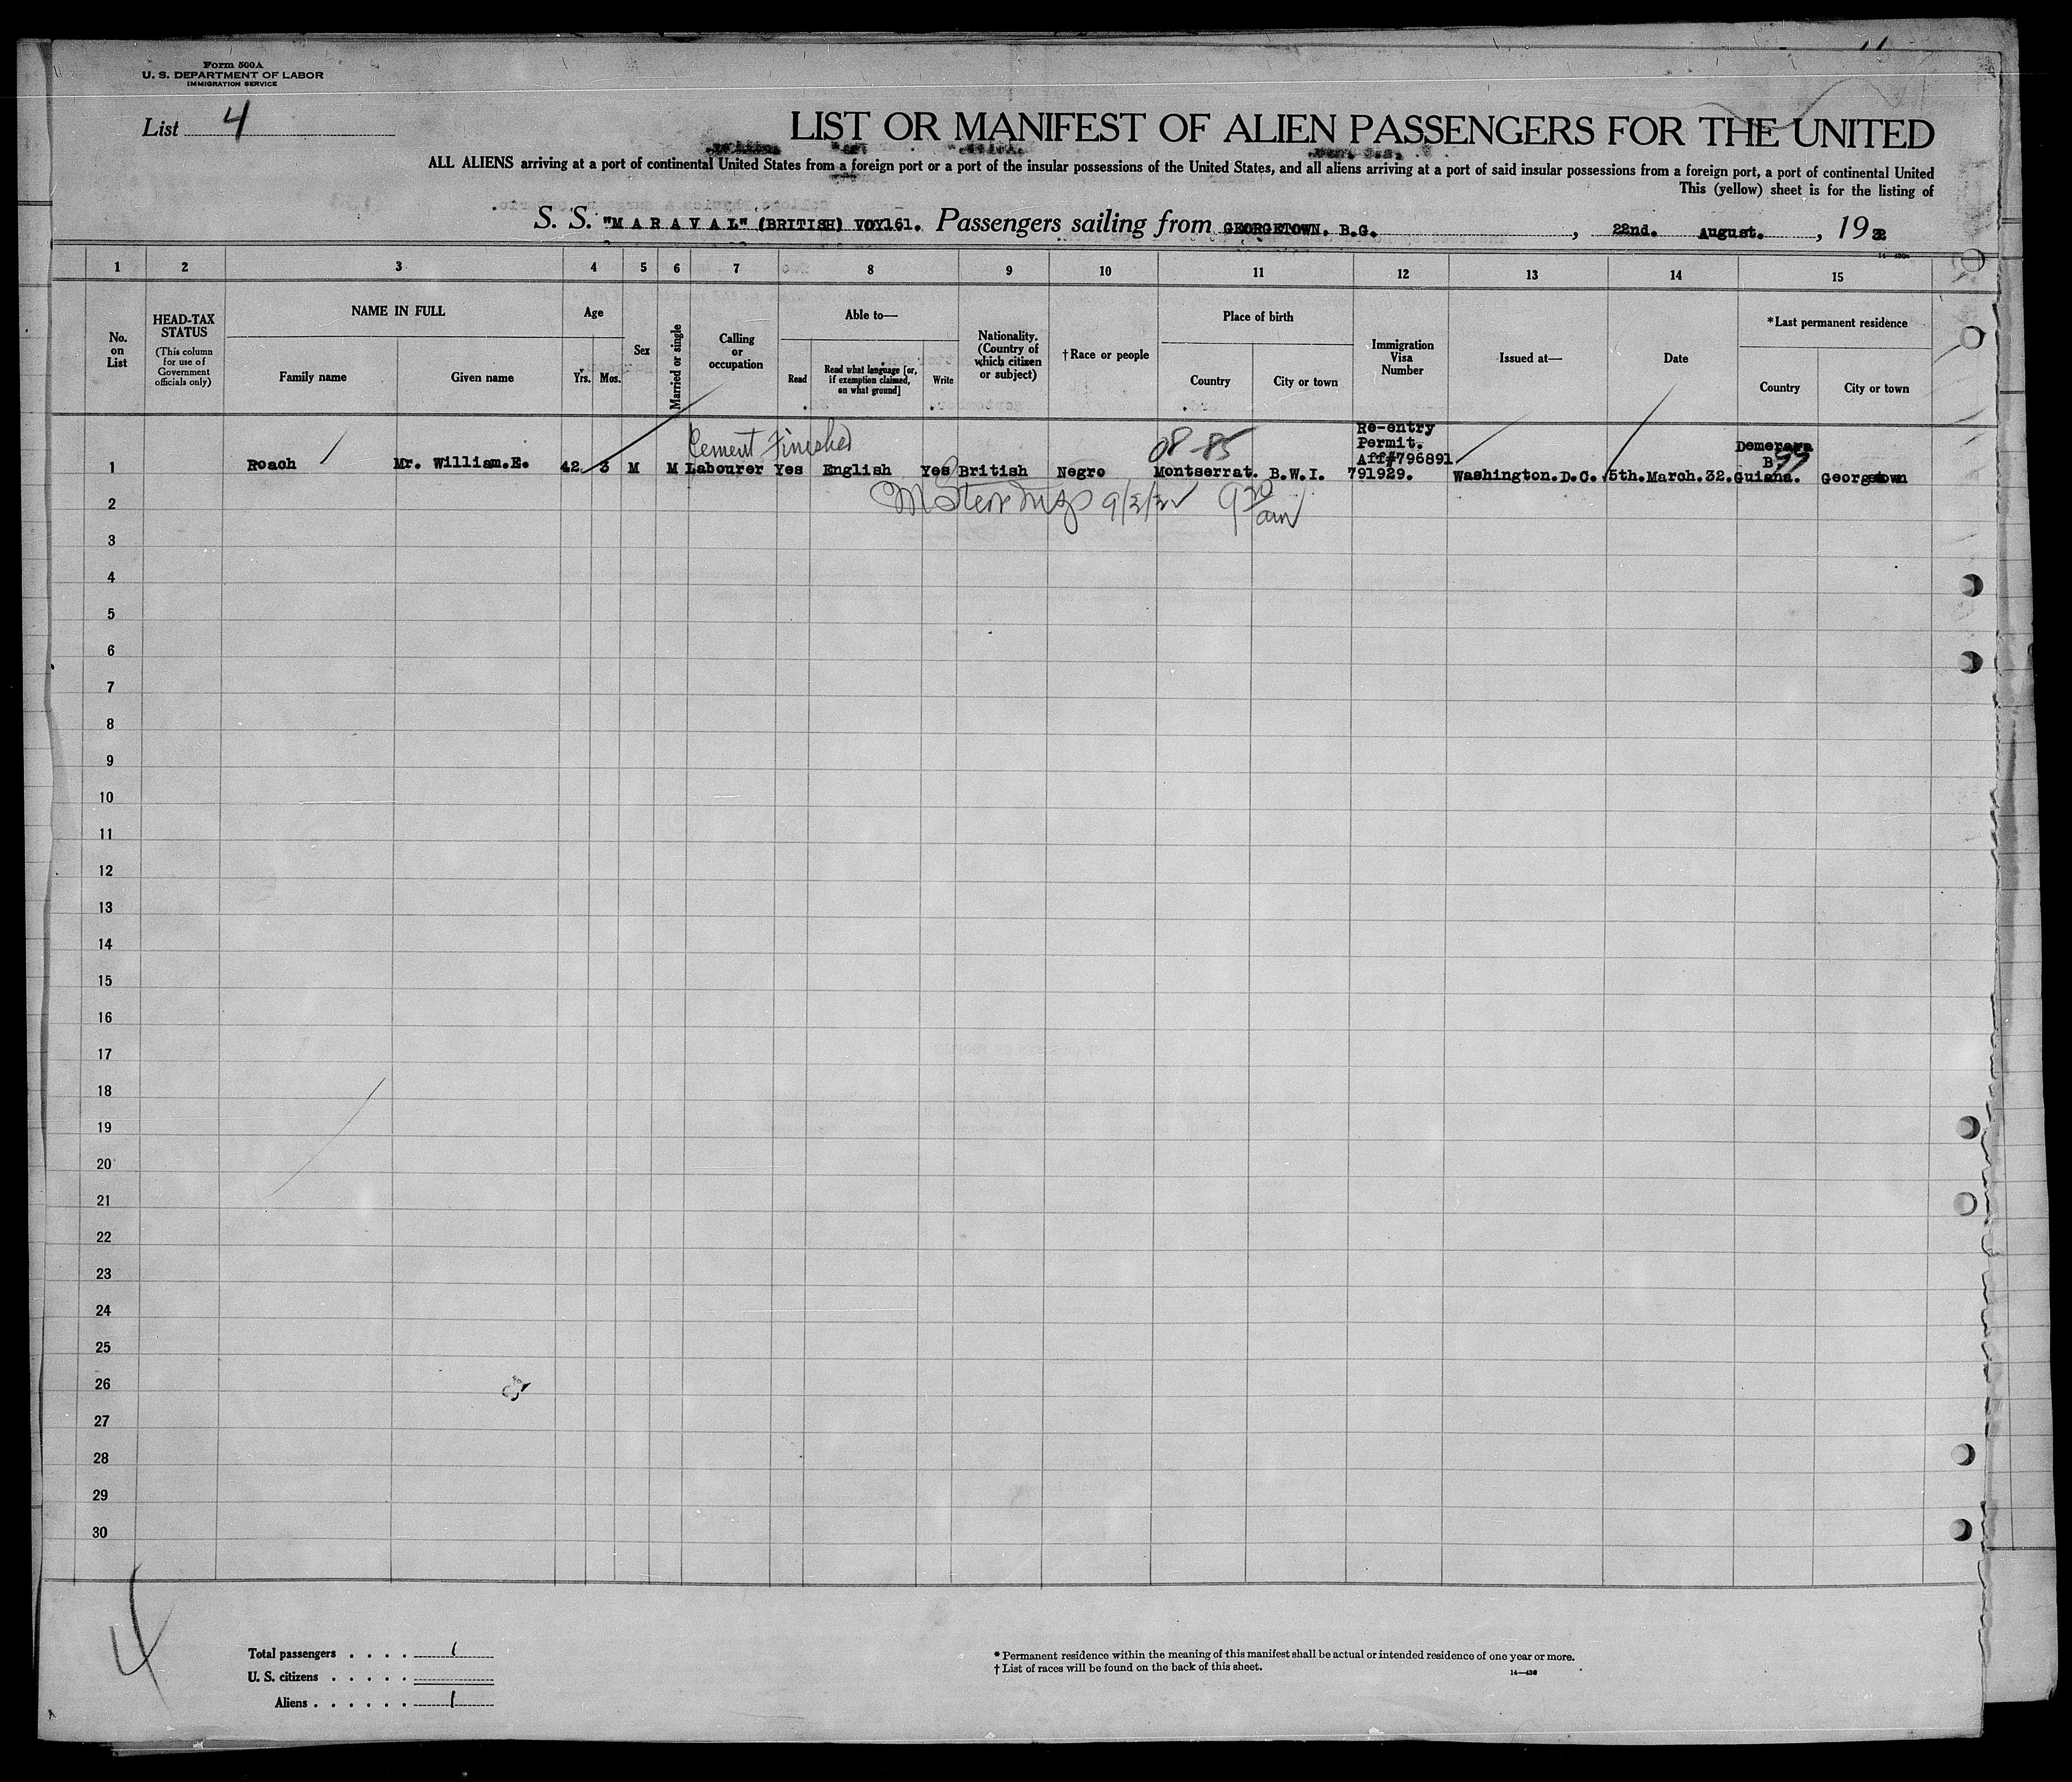 Form 500A
U. S. DEPARTMENT OF LABOR
IMMIGRATION SERVICE
List 4
LIST OR MANIFEST OF ALIEN PASSENGERS FOR THE UNITED
ALL ALIENS arriving at a port of continental United States from a foreign port or a port of the insular possessions of the United States, and all aliens arriving at a port of said insular possessions from a foreign port, a port of continental United
This (yellow) sheet is for the listing of
S. S. "MARAVAL" (BRITISH) VOY161. Passengers sailing from GEORGETOWN. B.G. , 22nd. August. , 1932
1 2 3 4 5 6 7 8 9 10 11 12 13 14 15
No. on List
HEAD-TAX STATUS
(This column for use of Government officials only)
NAME IN FULL
Family name
Given name
Age
Yrs. Mos.
Sex
Married or single
Calling or occupation
Able to—
Read
Read what language [or, if exemption claimed, on what ground]
Write
Nationality. (Country of which citizen or subject)
†Race or people
Place of birth
Country
City or town
Immigration Visa Number
Issued at—
Date
*Last permanent residence
Country
City or town
Re-entry
Permit.
Aff#796891
Cement Finisher
08-85
Demerara
B
99
1 Roach Mr. William.E. 42 3 M M Labourer Yes English Yes British Negro Montserrat. B.W.I. 791929. Washington.D.C. 5th.March.32. Guiana. Georgetown
2
9 30 am
3
4
5
6
7
8
9
10
11
12
13
14
15
16
17
18
19
20
21
22
23
24
25
26
27
28
29
30
4
Total passengers . . . . 1
U. S. citizens . . . . .
Aliens . . . . . . 1
* Permanent residence within the meaning of this manifest shall be actual or intended residence of one year or more.
† List of races will be found on the back of this sheet.
14—430